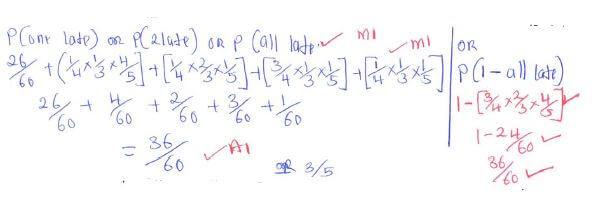 P(one late) or P(2 late) or P(all late) ✓ M1
26/60 + (1/4 × 1/3 × 4/5] + [1/4 × 2/3 × 1/5] + [3/4 × 1/3 × 1/5] + [1/4 × 1/3 × 1/5] ✓ M1
26/60 + 4/60 + 2/60 + 3/60 + 1/60
= 36/60 ✓ A1
OR 3/5
OR
P(1 - all late)
1 - [3/4 × 2/3 × 4/5] ✓
1 - 24/60 ✓
36/60 ✓